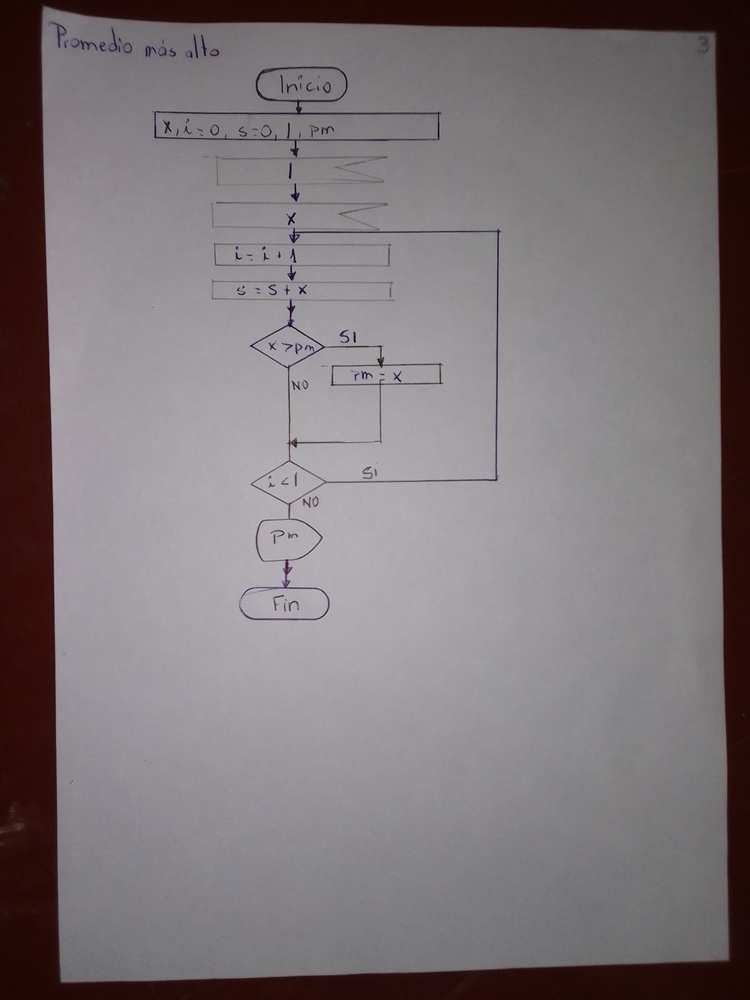 Promedio más alto
3
Inicio
x, i=0, s=0, 1, pm
1
x
i = i + 1
s = s + x
x > pm
SI
rm = x
NO
i < 1
Si
NO
Pm
Fin